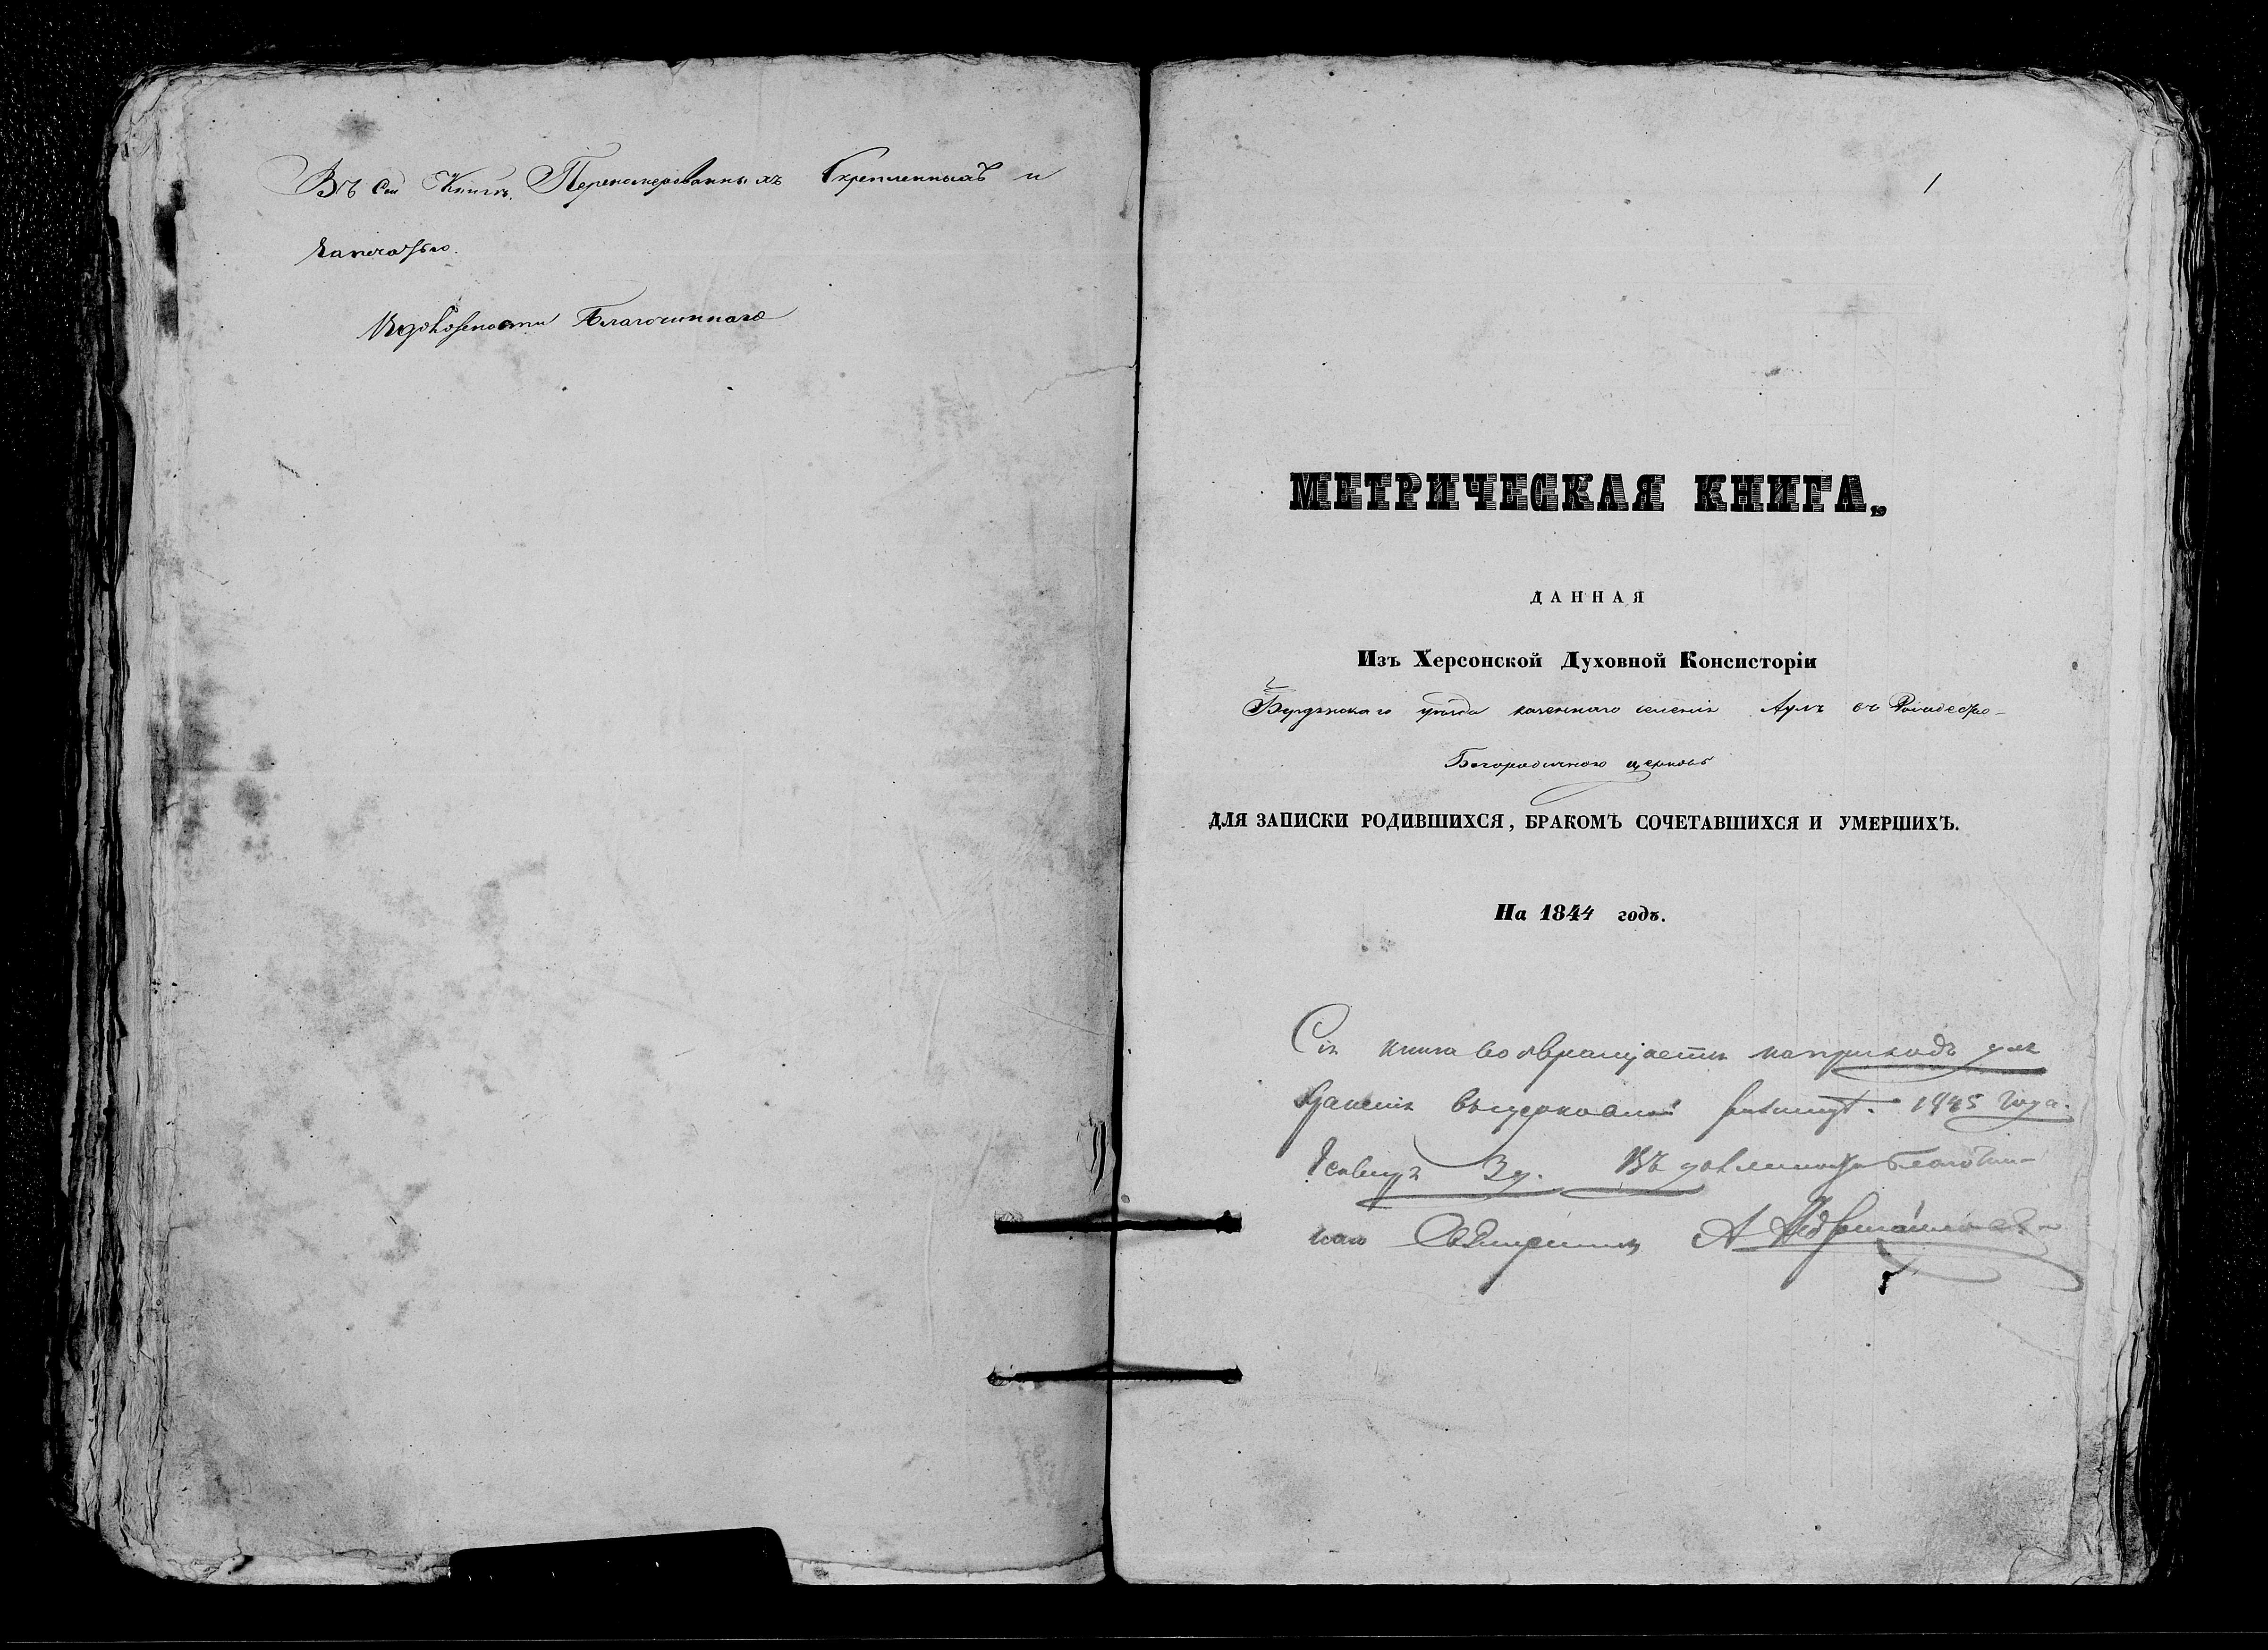 Въ сей Книгѣ Переномерованныхъ Скрепленныхъ и
печатью.
Благочиннаго
1
МЕТРИЧЕСКАЯ КНИГА,
ДАННАЯ
Изъ Херсонской Духовной Консисторіи
Бердянскаго уѣзда казеннаго селенія Аулъ въ Рождество-
Богородичною церковь
ДЛЯ ЗАПИСКИ РОДИВШИХСЯ, БРАКОМЪ СОЧЕТАВШИХСЯ И УМЕРШИХЪ.
На 1844 годъ.
Сія книга возвращается на приходъ для
храненія въ церковной 1845 года.
Генваря 3 д. Въ должности благочин-
наго Священникъ А